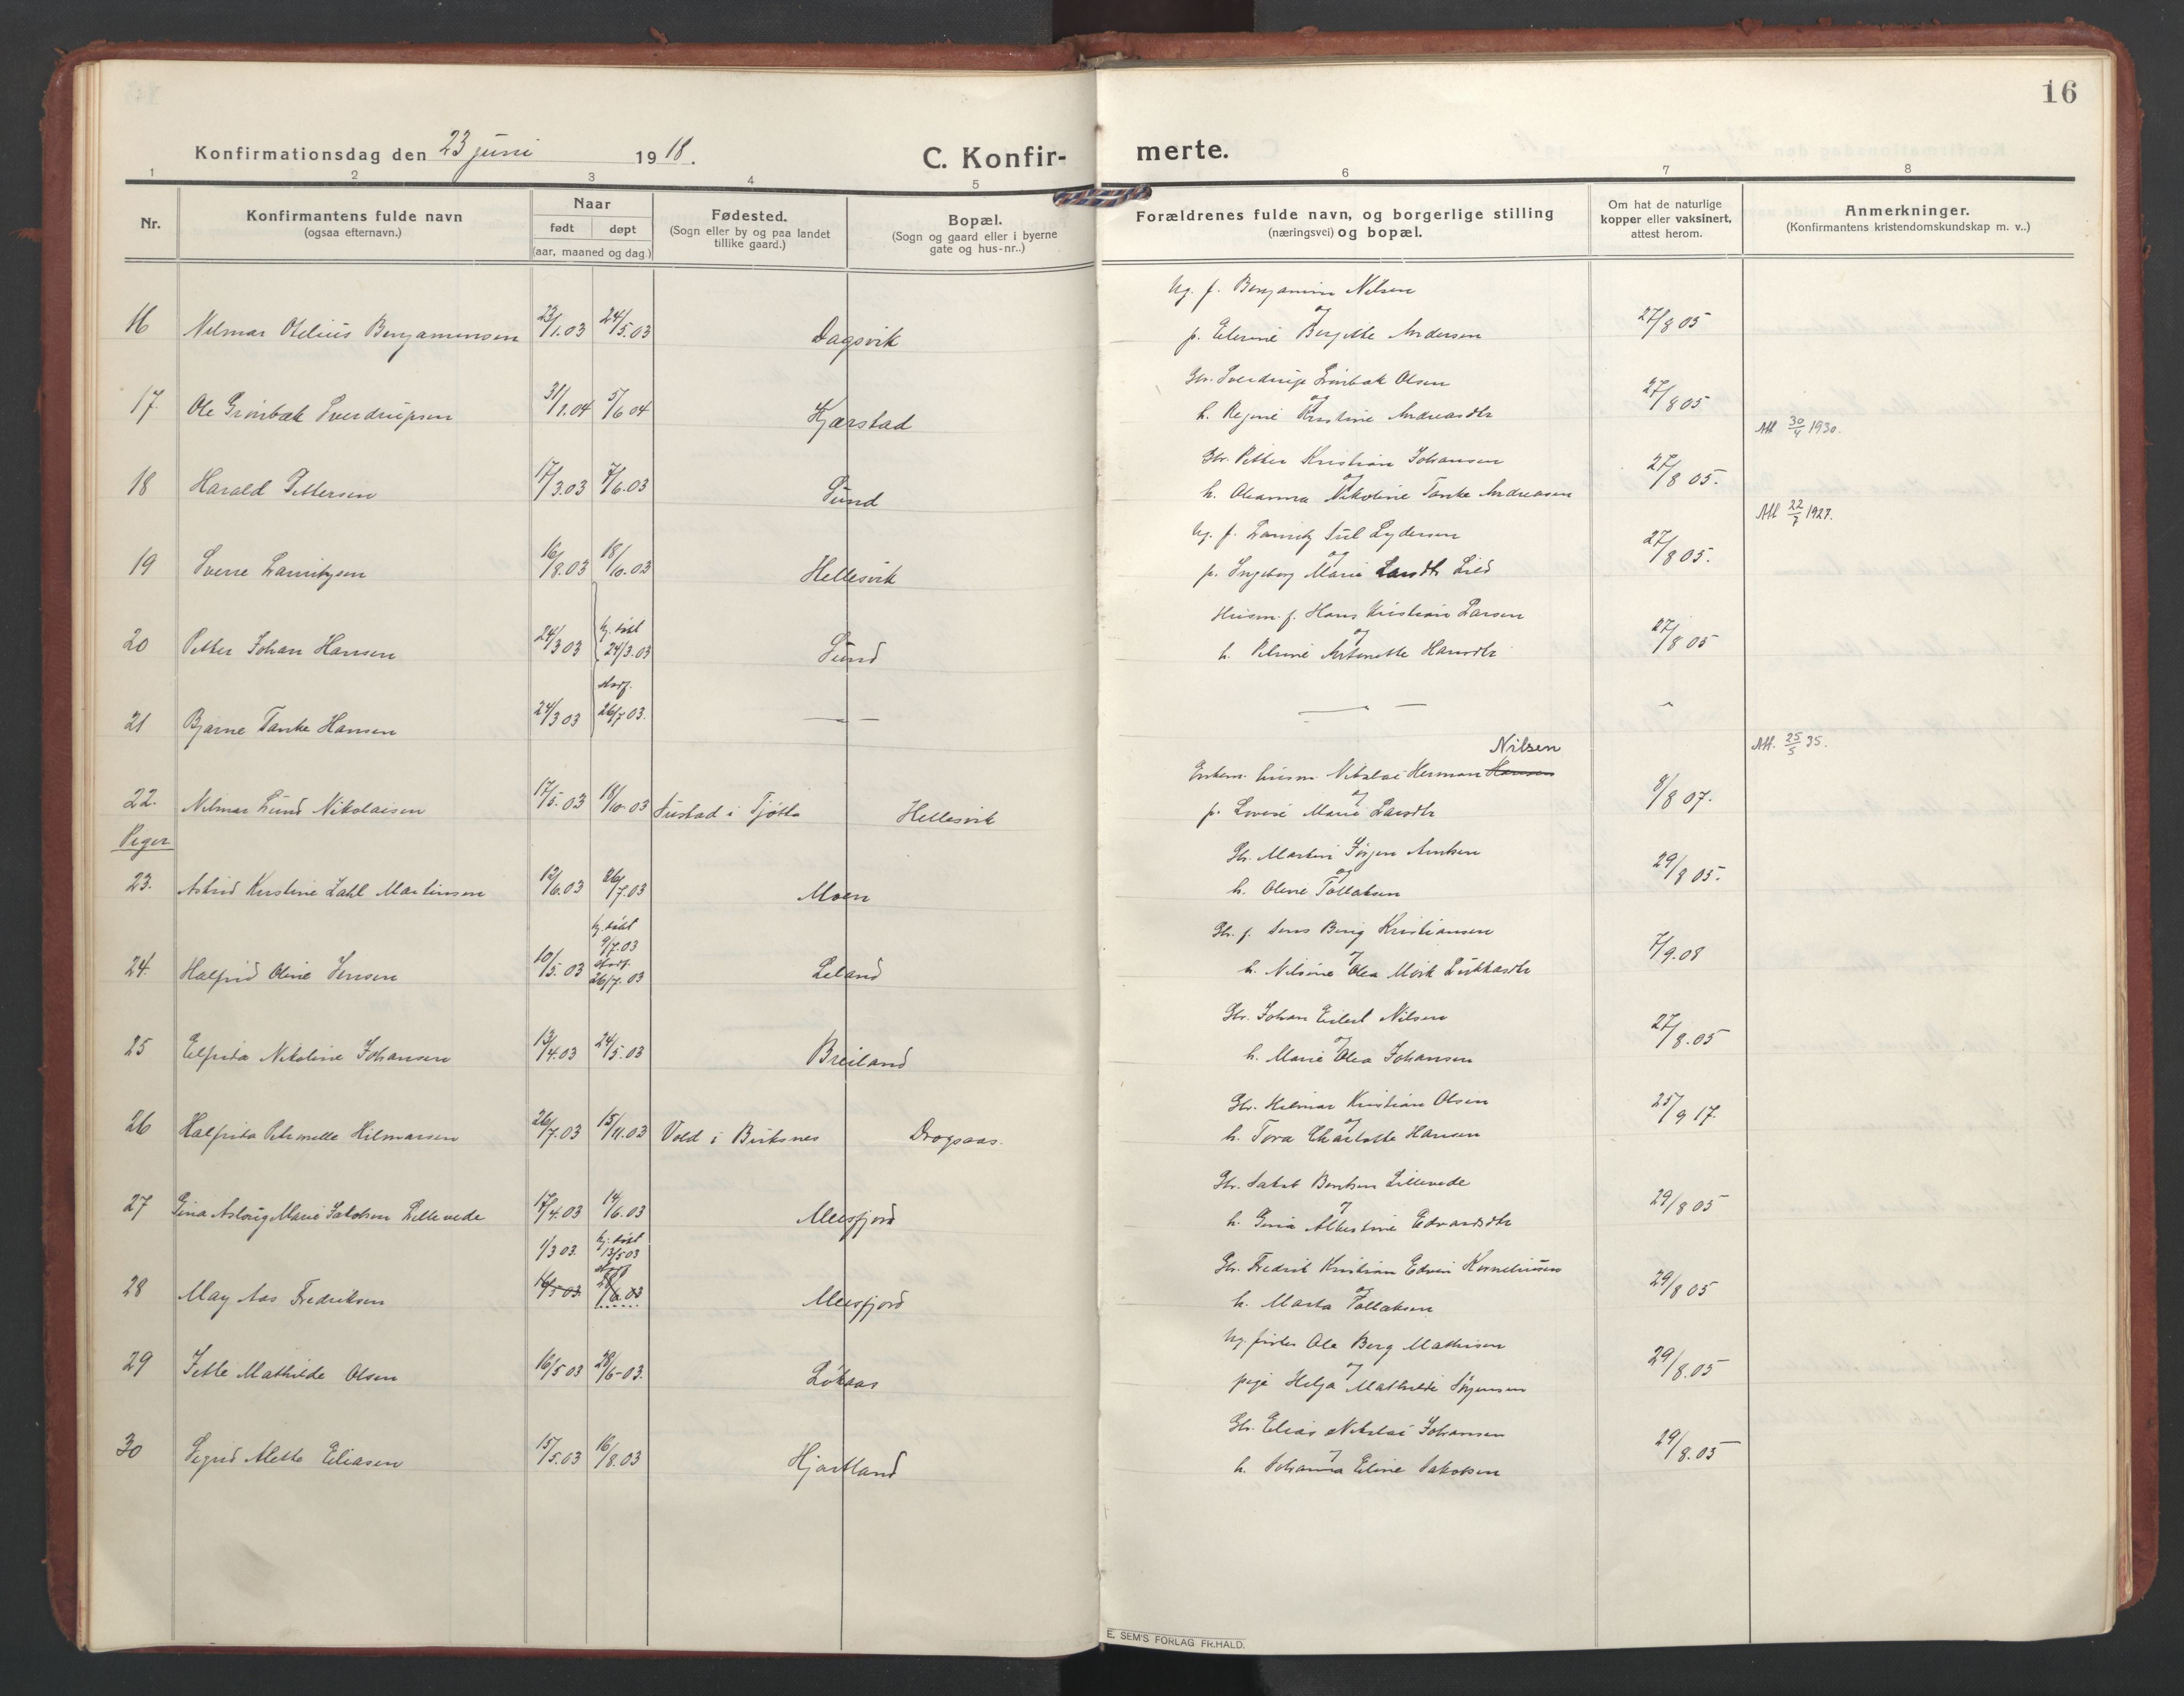 16
Konfirmationsdag den 23 juni 1918.
C. Konfir-
merte.
1 2 3 4 5 6 7 8
Nr.
Konfirmantens fulde navn
(ogsaa efternavn.)
Naar
født døpt
(aar, maaned og dag)
Fødested.
(Sogn eller by og paa landet
tillike gaard.)
Bopæl.
(Sogn og gaard eller i byerne
gate og hus-nr..)
Forældrenes fulde navn, og borgerlige stilling
(næringsvei) og bopæl.
Om hat de naturlige
kopper eller vaksinert,
attest herom.
Anmerkninger.
(Konfirmantens kristendomskundskap m. v..)
Ug. f. Benjamin Nilsen
og
16 Nilmar Otelius Benjaminsen 23/1.03 24/5.03 Dagsvik p. Elerine Bergitte Andersen 27/8 05
Gbr. Sverdrup Grönbæk Olsen
og
17. Ole Grönbæk Sverdrupsen 31/1.04 5/6 04 Kjærstad h. Regine Kristine Andreasdtr 27/8 05
Att 30/4 1930.
Gbr. Petter Kristian Johansen
og
18 Harald Pettersen 17/3.03 7/6.03 Sund h. Oleanna Nikoline Tanke Andreasen 27/8 05.
Att 22/7 1927.
Ug. f. Lauritz Jul Lydersen
og
19 Sverre Lauritzsen 16/8.03 18/10.03 Hellesvik p. Ingeborg Marie Larsdtr Lied 27/8 05.
Husm. f. Hans Kristian Larsen
og
20 Petter Johan Hansen 24/3 03 hj. döbt 24/3.03 Sund h. Petrine Antonette Hansdtr 27/8 05
stadf.
21 Bjarne Tanke Hansen 24/3 03 26/7 03. — —
Nilsen
Att. 25/5 35.
Enkem. husm. Nikolai Herman Hansen
og
22. Nilmar Lund Nikolaisen 17/5.03 18/10.03 Sustad i Tjøtta Hellesvik p. Lovise Marie Larsdtr 8/8 07.
Piger
Gbr. Martin Jörgen Arntsen
og
23. Astrid Kristine Zahl Martinsen 12/6.03 26/7.03 Moen h. Oline Tollaksen 29/8 05.
Gbr. f. Jens Berg Kristiansen
og
24. Halfrid Oline Jensen 10/5.03 hj. döbt 9/7.03 stadf. 26/7.03 Leland h. Nilsine Olea Mörk Lukkasdtr 7/9.08
Gbr. Johan Eilert Nilsen
og
25 Elfrida Nikoline Johansen 13/4.03 24/5.03 Breiland h. Marie Olea Johansen 27/8.05
Gbr. Hilmar Kristian Olsen
og
26 Halfrida Petronelle Hilmarsen 26/7.03 15/11.03 Vold i Birksnes Drogsaas. h. Tora Charlotte Hansen 25/9 17.
Gbr. Jakob Bentsen Lillevede
og
27 Gina Aslaug Marie Jakobsen Lillevede 17/4.03 14/6.03 Meisfjord h. Gina Albertine Edvardsdtr 29/8 05
1/3 03. hj. döbt 13/5 03
stadf
Gbr. Fredrik Kristian Edvin Korneliussen
og
28 May Aas Fredriksen 16/5 03 28/6.03 Meisfjord h. Marta Tollaksen 29/8 05
Ug. fisker Ole Berg Mathisen
og
29 Jette Mathilde Olsen 16/5 03 28/6-03. Lökaas pige Helga Mathilde Jörgensen 29/8.05
Gbr. Elias Nikolai Johansen
og
30 Sigrid Alette Eliasen 15/5.03 16/8.03 Hjartland h. Johanna Eline Jakobsen 29/8.05
E. SEM'S FORLAG FR.HALD.